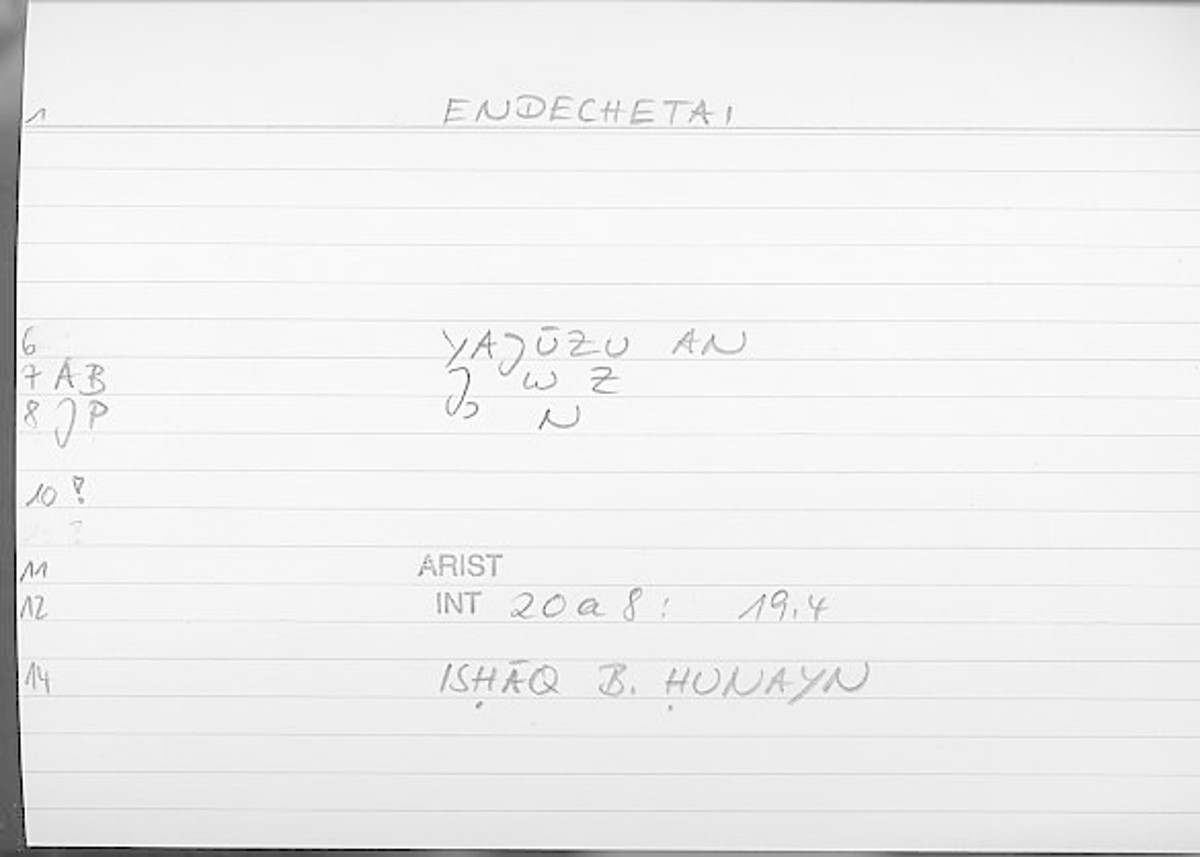 1 ENDECHETAI
6 YAJŪZU AN
7 AB J W Z
8 JP N
10 ?
11 ARIST
12 INT 20a8: 19.4
14 ISḤĀQ B. ḤUNAYN